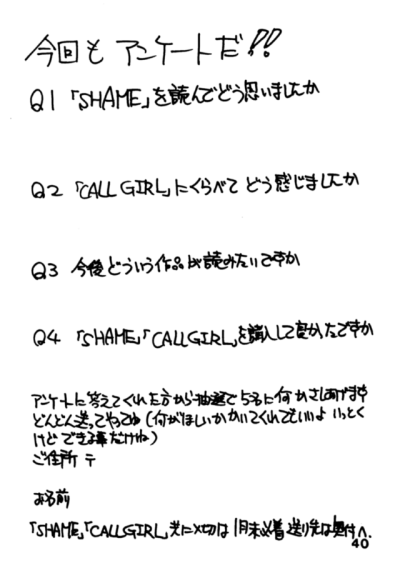 今回も アンケートだ!!
Q1 「SHAME」を読んでどう思いましたか
Q2 「CALL GIRL」にくらべて どう感じましたか
Q3 今後どういう作品が読みたいですか
Q4 「SHAME」「CALLGIRL」を購入して良かったですか
アンケートに答えてくれた方から抽選で5名に何かさしあげます
どんどん送ってやってね(何がほしいかかいてくれてもいいよ いっとく
けど できる事だけね)
ご住所 〒
お名前
「SHAME」「CALLGIRL」共に〆切は 1月末必着 送り先は奥付へ.
40